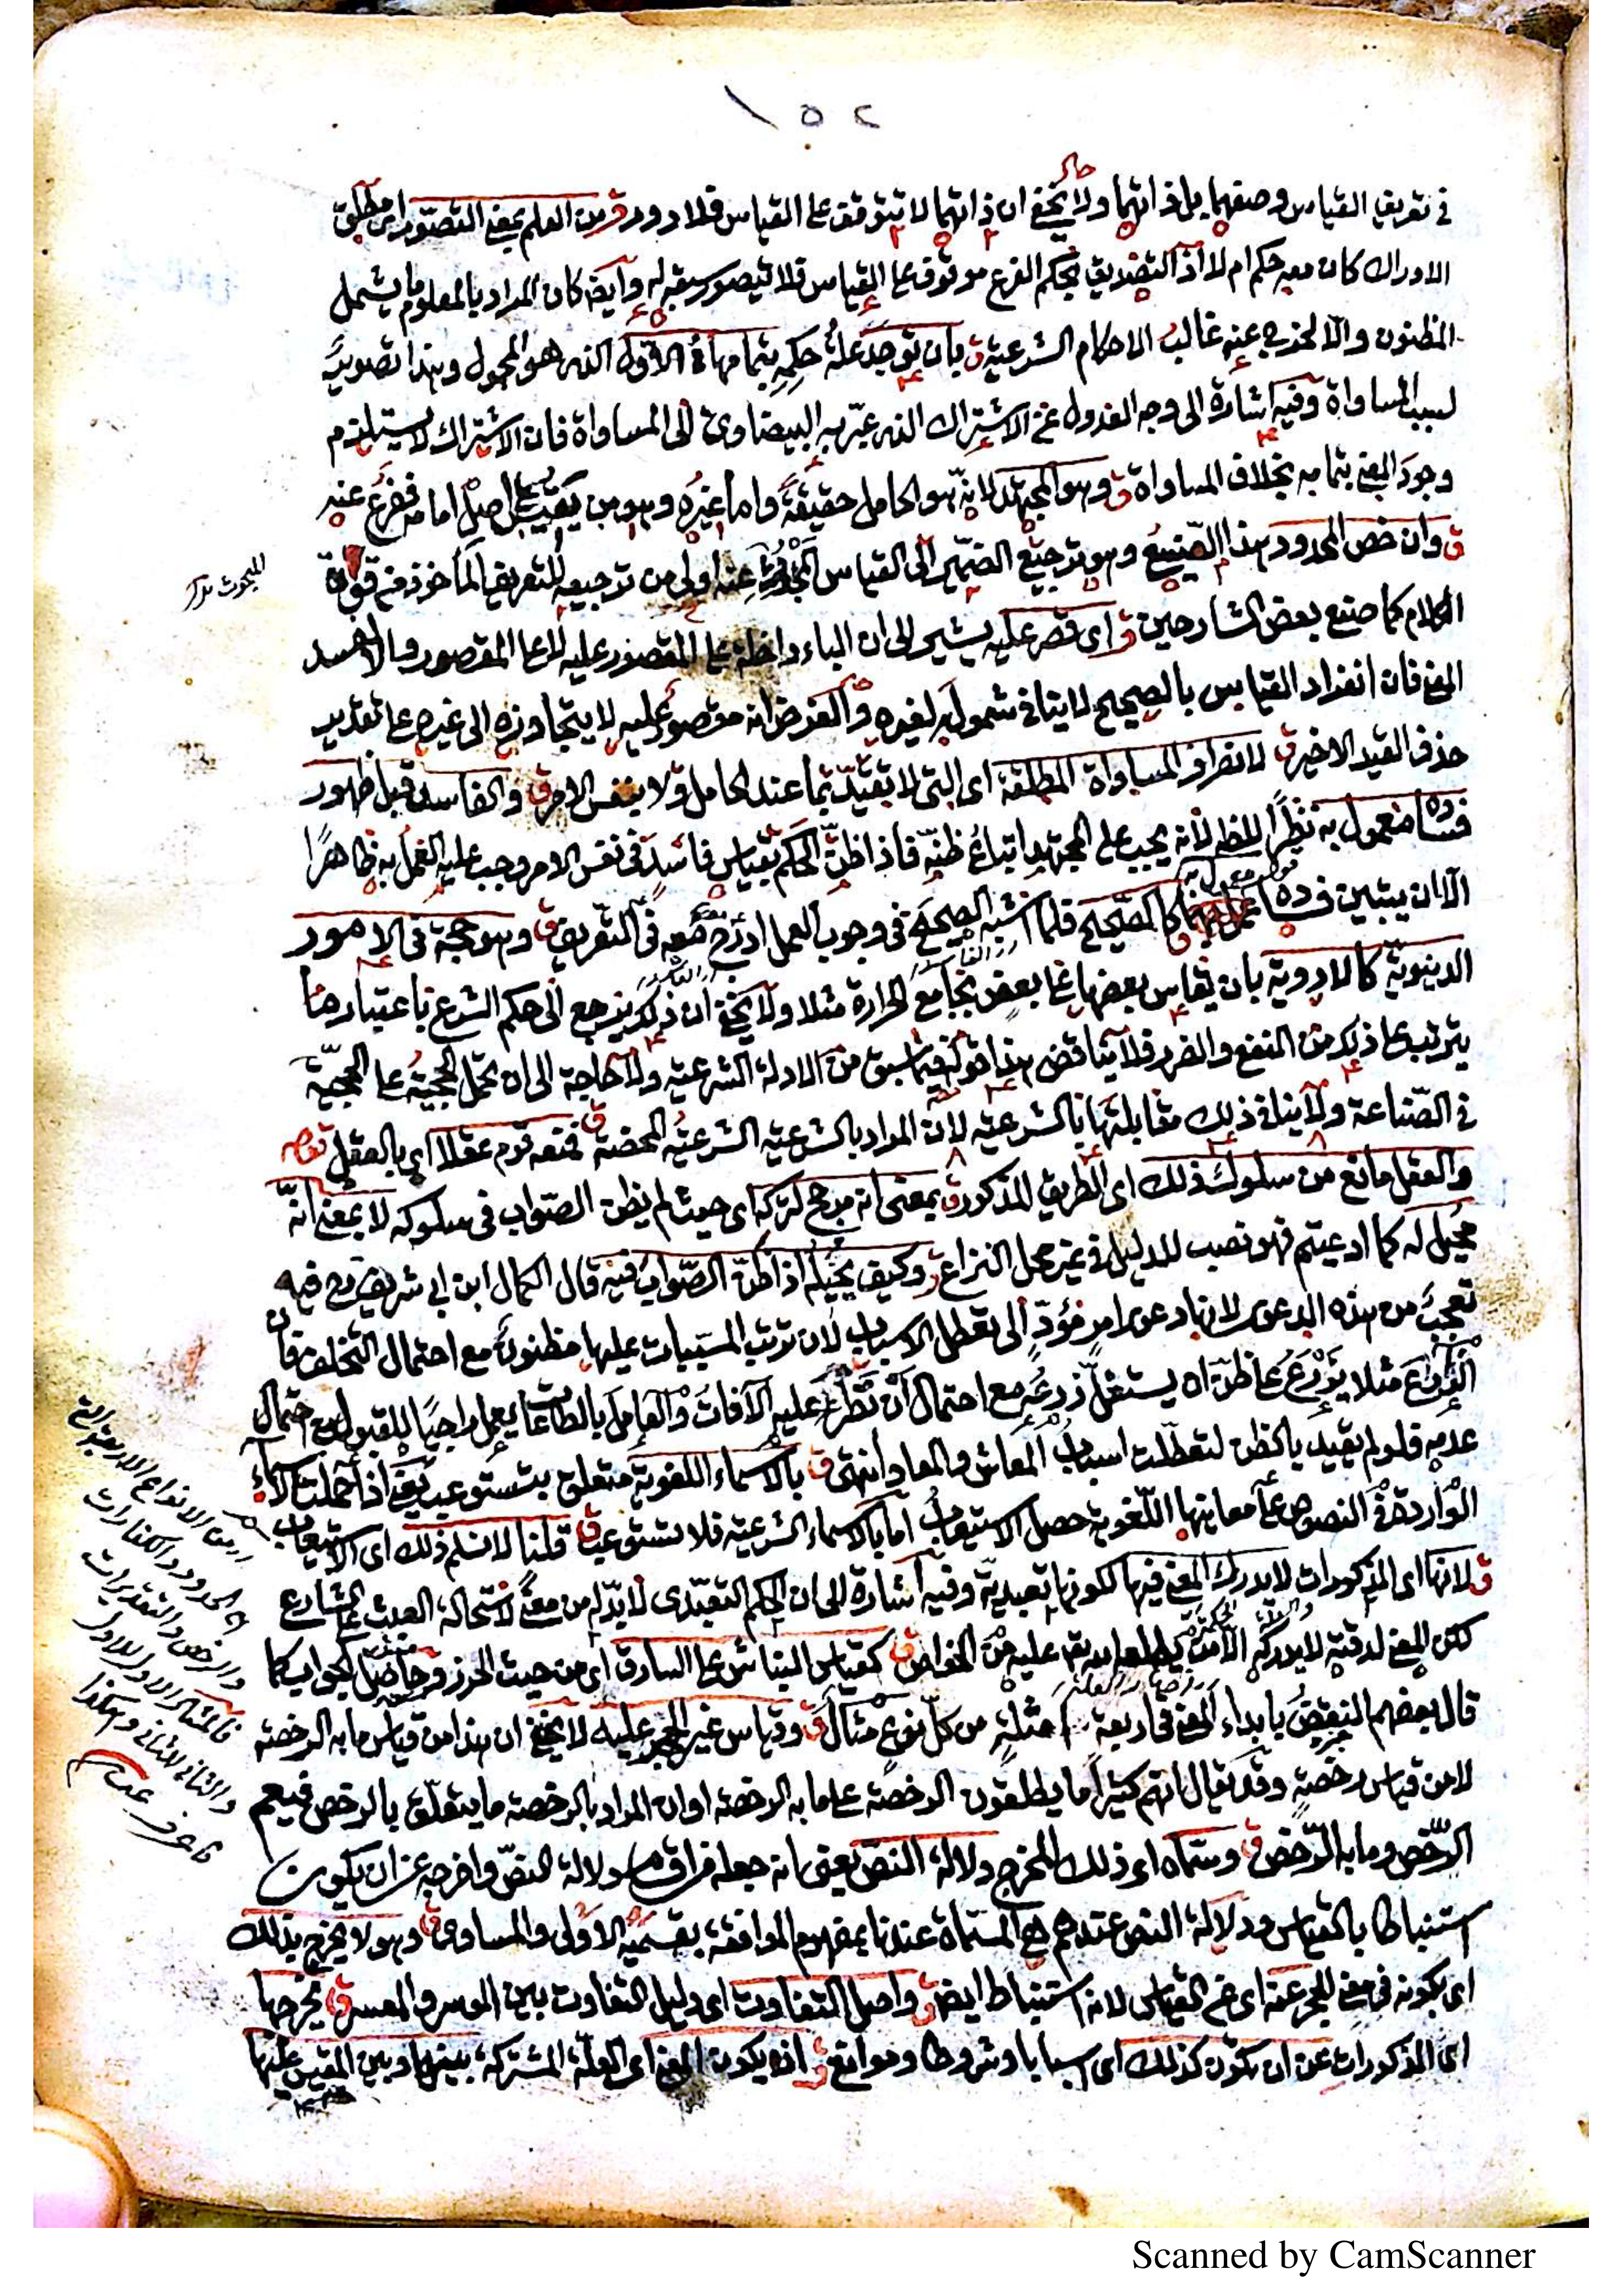 ١٥٢
في تعريف القياس وصفهما بل ذاتهما ولا يخفى ان ذاتهما لا تتوقف على القياس فلا دور ق من العلم بمعنى التصور اى مطلق
الادراك كان معه حكم ام لا اذ التصديق بحكم الفرع موقوف على القياس فلا يتصور سبقه له وايضا كان المراد بالمعلوم ما يشمل
المظنون والا لخرج عنه غالب الاحكام الشرعية ق بان توجد علة حكمه بتمامها فى الاول الذى هو المحمول وهذا تصوير
لسبب المساواة وفيه اشارة الى وجه العدول عن الاشتراك الذى عبّر به البيضاوى الى المساواة فان الاشتراك لا يستلزم
وجود المعنى بتمامه بخلاف المساواة ق وهو المجتهد لانه هو الحامل حقيقة واما غيره وهو من يقيس على اصل امامه ففرع عنه
ق وان خص المحدود بهذا الصنيع وهو ترجيع الضمير الى القياس المحدود عنه اولى من ترجيعه للتعريف المأخوذ من قوة
للبحوث
الكلام كما صنع بعض الشارحين ق اى قصر عليه يشير الى ان الباء داخلة على المقصور عليه لا على المقصور والا لفسد
المعنى فان انفراد القياس بالصحيح لا ينافى شموله لغيره والغرض انه مقصور عليه لا يتجاوزه الى غيره على تقدير
حذف القيد الاخير ق لانصراف المساواة المطلقة اى التى لا تقيّد بما عند الحامل ولا بنفس الامر ق والفاسد قبل ظهور
فساده معمول به نظرا للظ لأنه يجب على المجتهد اتباع ظنه فاذا ظن الحكم بقياس فاسد فى نفس الامر وجب عليه العمل به ظاهرا
الا ان يتبين فساده كالصحيح فلما اشبه الصحيح فى وجوب العمل ادرج معه فى التعريف ق وهو حجة فى الامور
الدنيوية كالادوية بان يقاس بعضها على بعض بجامع الحرارة مثلا ولا يخفى ان ذلك يرجع الى حكم الشرع باعتبار ما
يترتب على ذلك من النفع والضرر فلا يناقض هذا قوله فيما سبق من الادلة الشرعية ولا حاجة الى ان تحمل الحجية على الحجية
فى الصناعة ولا ينافى ذلك مقابلتها بالشرعية لأن المراد بالشرعية الشرعية المحضة ق فمنعه قوم عقلا اى بالعقل
والعقل مانع من سلوك ذلك اى الطريق المذكور ق بمعنى انه مرجح لتركه اى حيث لم يظن الصواب فى سلوكه لا بمعنى انه
محيل له كما ادعيتم فهو نصب للدليل فى غير محل النزاع ق وكيف يحيله اذا ظن الصواب فيه قال الكمال ابن ابى شريف فيه
تعجب من هذه الدعوى لانها دعوى امر مؤدّ الى تعطل الاسباب لان ترتب المسببات عليها مظنون مع احتمال التخلف فان
الزراع مثلا يزرع على ظن انه يستغل زرعه مع احتمال ان تطرأ عليه الآفات والعامل بالطاعات يعمل راجيا للقبول مع احتمال
عدمه فلو لم يقيد بالظن لتعطلت اسباب المعاش والمعاد انتهى ق بالاسماء اللغوية متعلق بتستوعب يعنى اذا حملت الاسماء
الواردة فى النصوص على معانيها اللغوية حصل الاستيعاب اما بالاسماء الشرعية فلا تستوعب ق قلنا لا نسلم ذلك اى الاستيعاب
ق لانها اى المذكورات لا يدرك المعنى فيها لكونها تعبدية وفيه اشارة الى ان الحكم التعبدى لا بد له من معنى لاستحالة العبث على الشارع
لكن المعنى لدقته لا يدركه الا من يطلعه الله تعالى عليه من الخواص ق كقياس النباش على السارق اى من حيث الحرز وحاصل الجواب كما
قال بعضهم النقض بابداء المعنى فى اربعة امثلة من كل نوع مثال ق وقياس غير الحجر عليه لا يخفى ان هذا من قياس ما به الرخصة
لا من قياس رخصة وقد يقال انهم كثيرا ما يطلقون الرخصة على ما به الرخصة او ان المراد بالرخصة ما يتعلق بالرخص فيعم
الرخص وما به الرخص ق وسماه اى ذلك المخرج دلالة النص يعنى انه جعله فراد دلالة النص واخرجه عن ان يكون
استنباطا بالقياس ودلالة النص عندهم هى المسماة عندنا بمفهوم الموافقة بقسميه الاولى والمساوى ق وهو لا يخرج بذلك
اى بكونه فى معنى الحجر عنه اى عن القياس لانه استنباط ايضا ق واصل التفاوت اى دليل التفاوت بين الموسر والمعسر ق يخرجها
اى المذكورات عن ان تكون كذلك اى اسبابا وشروطا وموانع ق اذ يكون المعنى اى العلة المشتركة بينها وبين المقيس عليها
من الانواع الاربعة
الحدود والكفارات
والرخص والتقديرات
فالمثال الاول للاول
والثانى للثانى وهكذا
Scanned by CamScanner